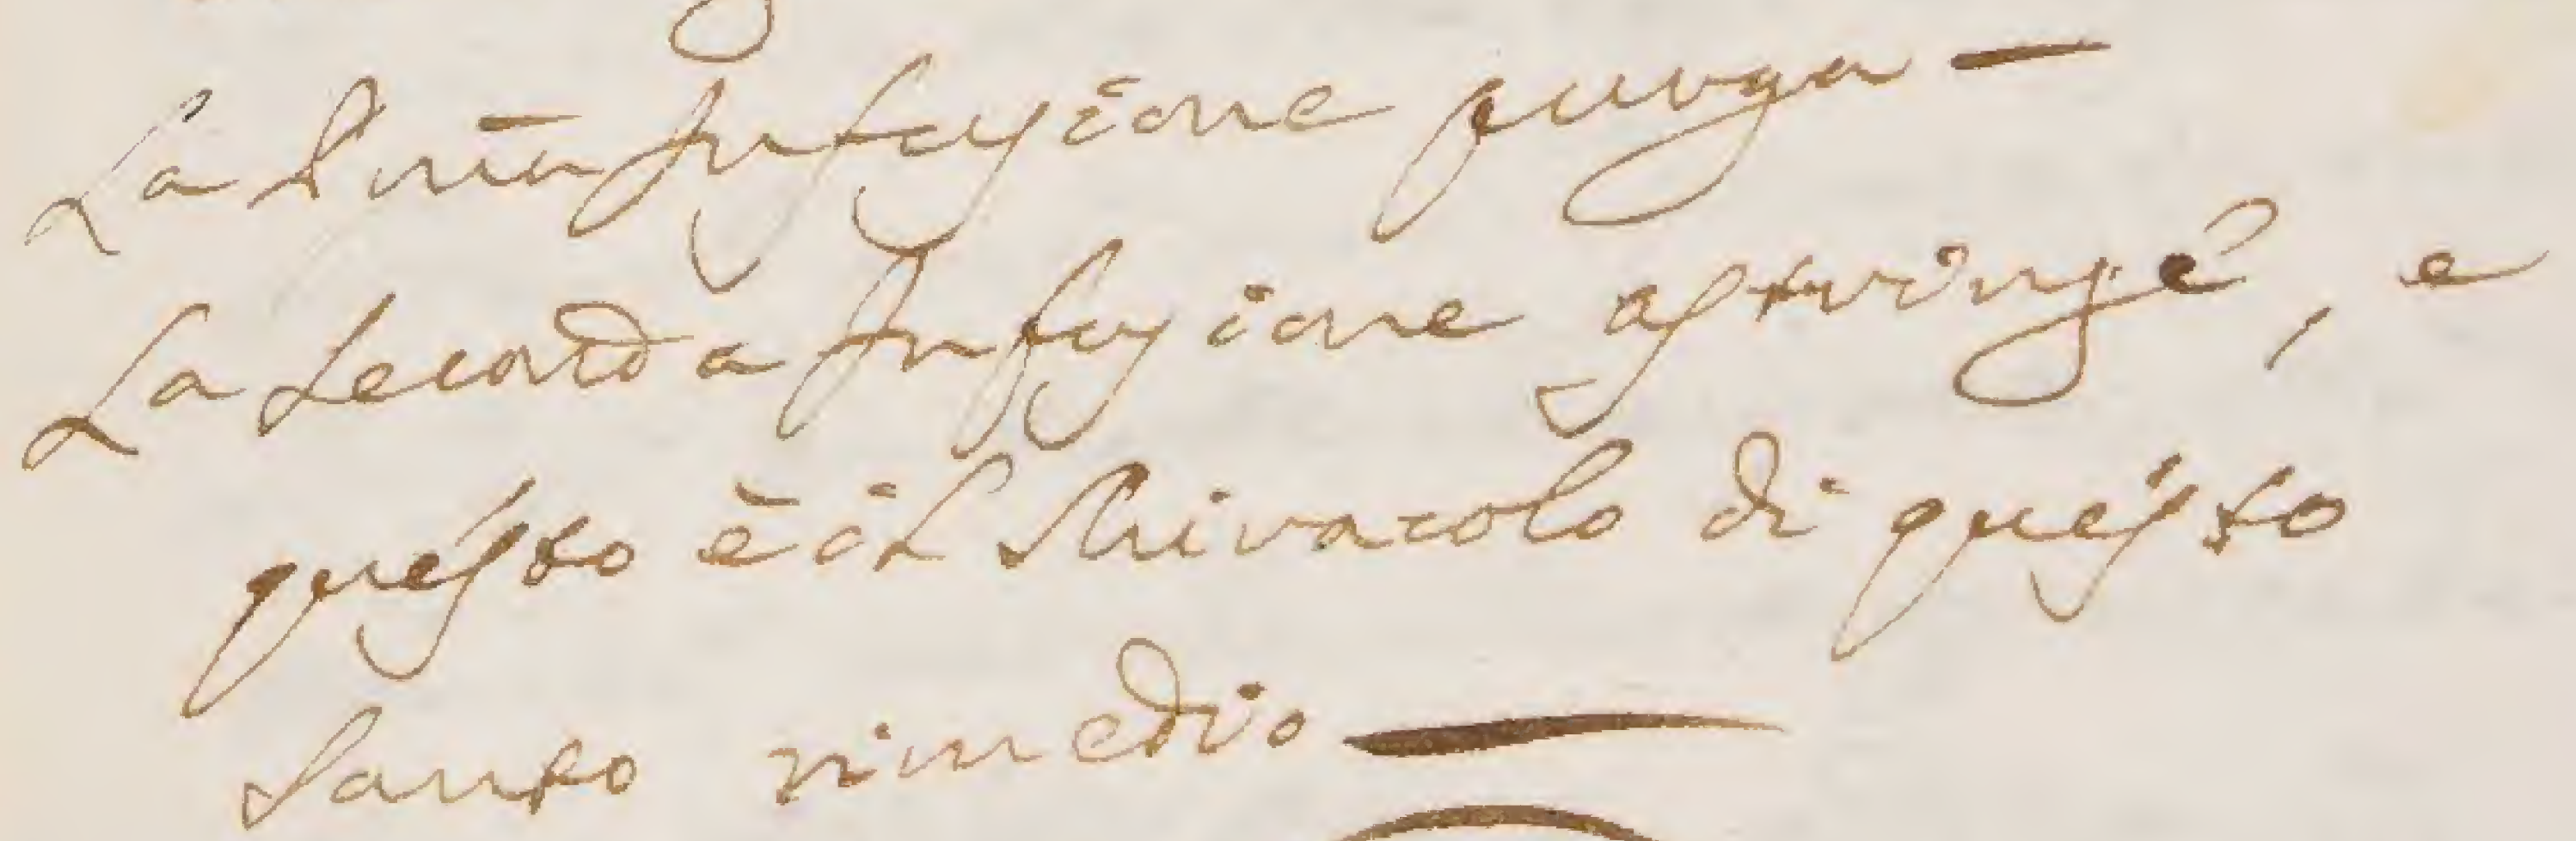 La Prīa Infusione purga —
La Seconda Infusione astringe, e
questo è il Mivacolo di questo
Santo rimedio —